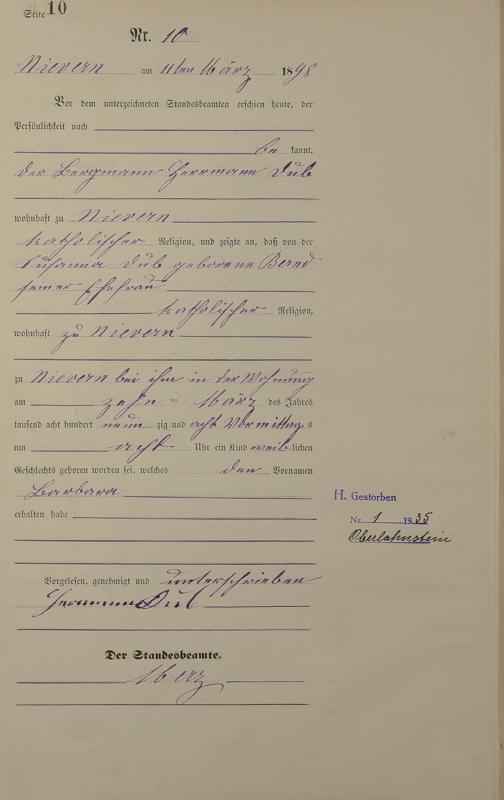 Seite 10
Nr. 10
Nievern am 11ten März 1898
Vor dem unterzeichneten Standesbeamten erschien heute, der
Persönlichkeit nach
be kannt,
der Bergmann Herrmann Dub
wohnhaft zu Nievern
katholischer Religion, und zeigte an, daß von der
Susanna Dub geborene Bernd
seiner Ehefrau
katholischer Religion,
wohnhaft zu Nievern
zu Nievern bei ihm in der Wohnung
am zehn ten März des Jahres
tausend acht hundert neun zig und acht Vormittag s
um acht Uhr ein Kind weib lichen
Geschlechts geboren worden sei, welches den Vornamen
Barbara
erhalten habe
Vorgelesen, genehmigt und unterschrieben
Hermann Dub
Der Standesbeamte.
Merz
H. Gestorben
Nr. 1 1935
Oberlahnstein